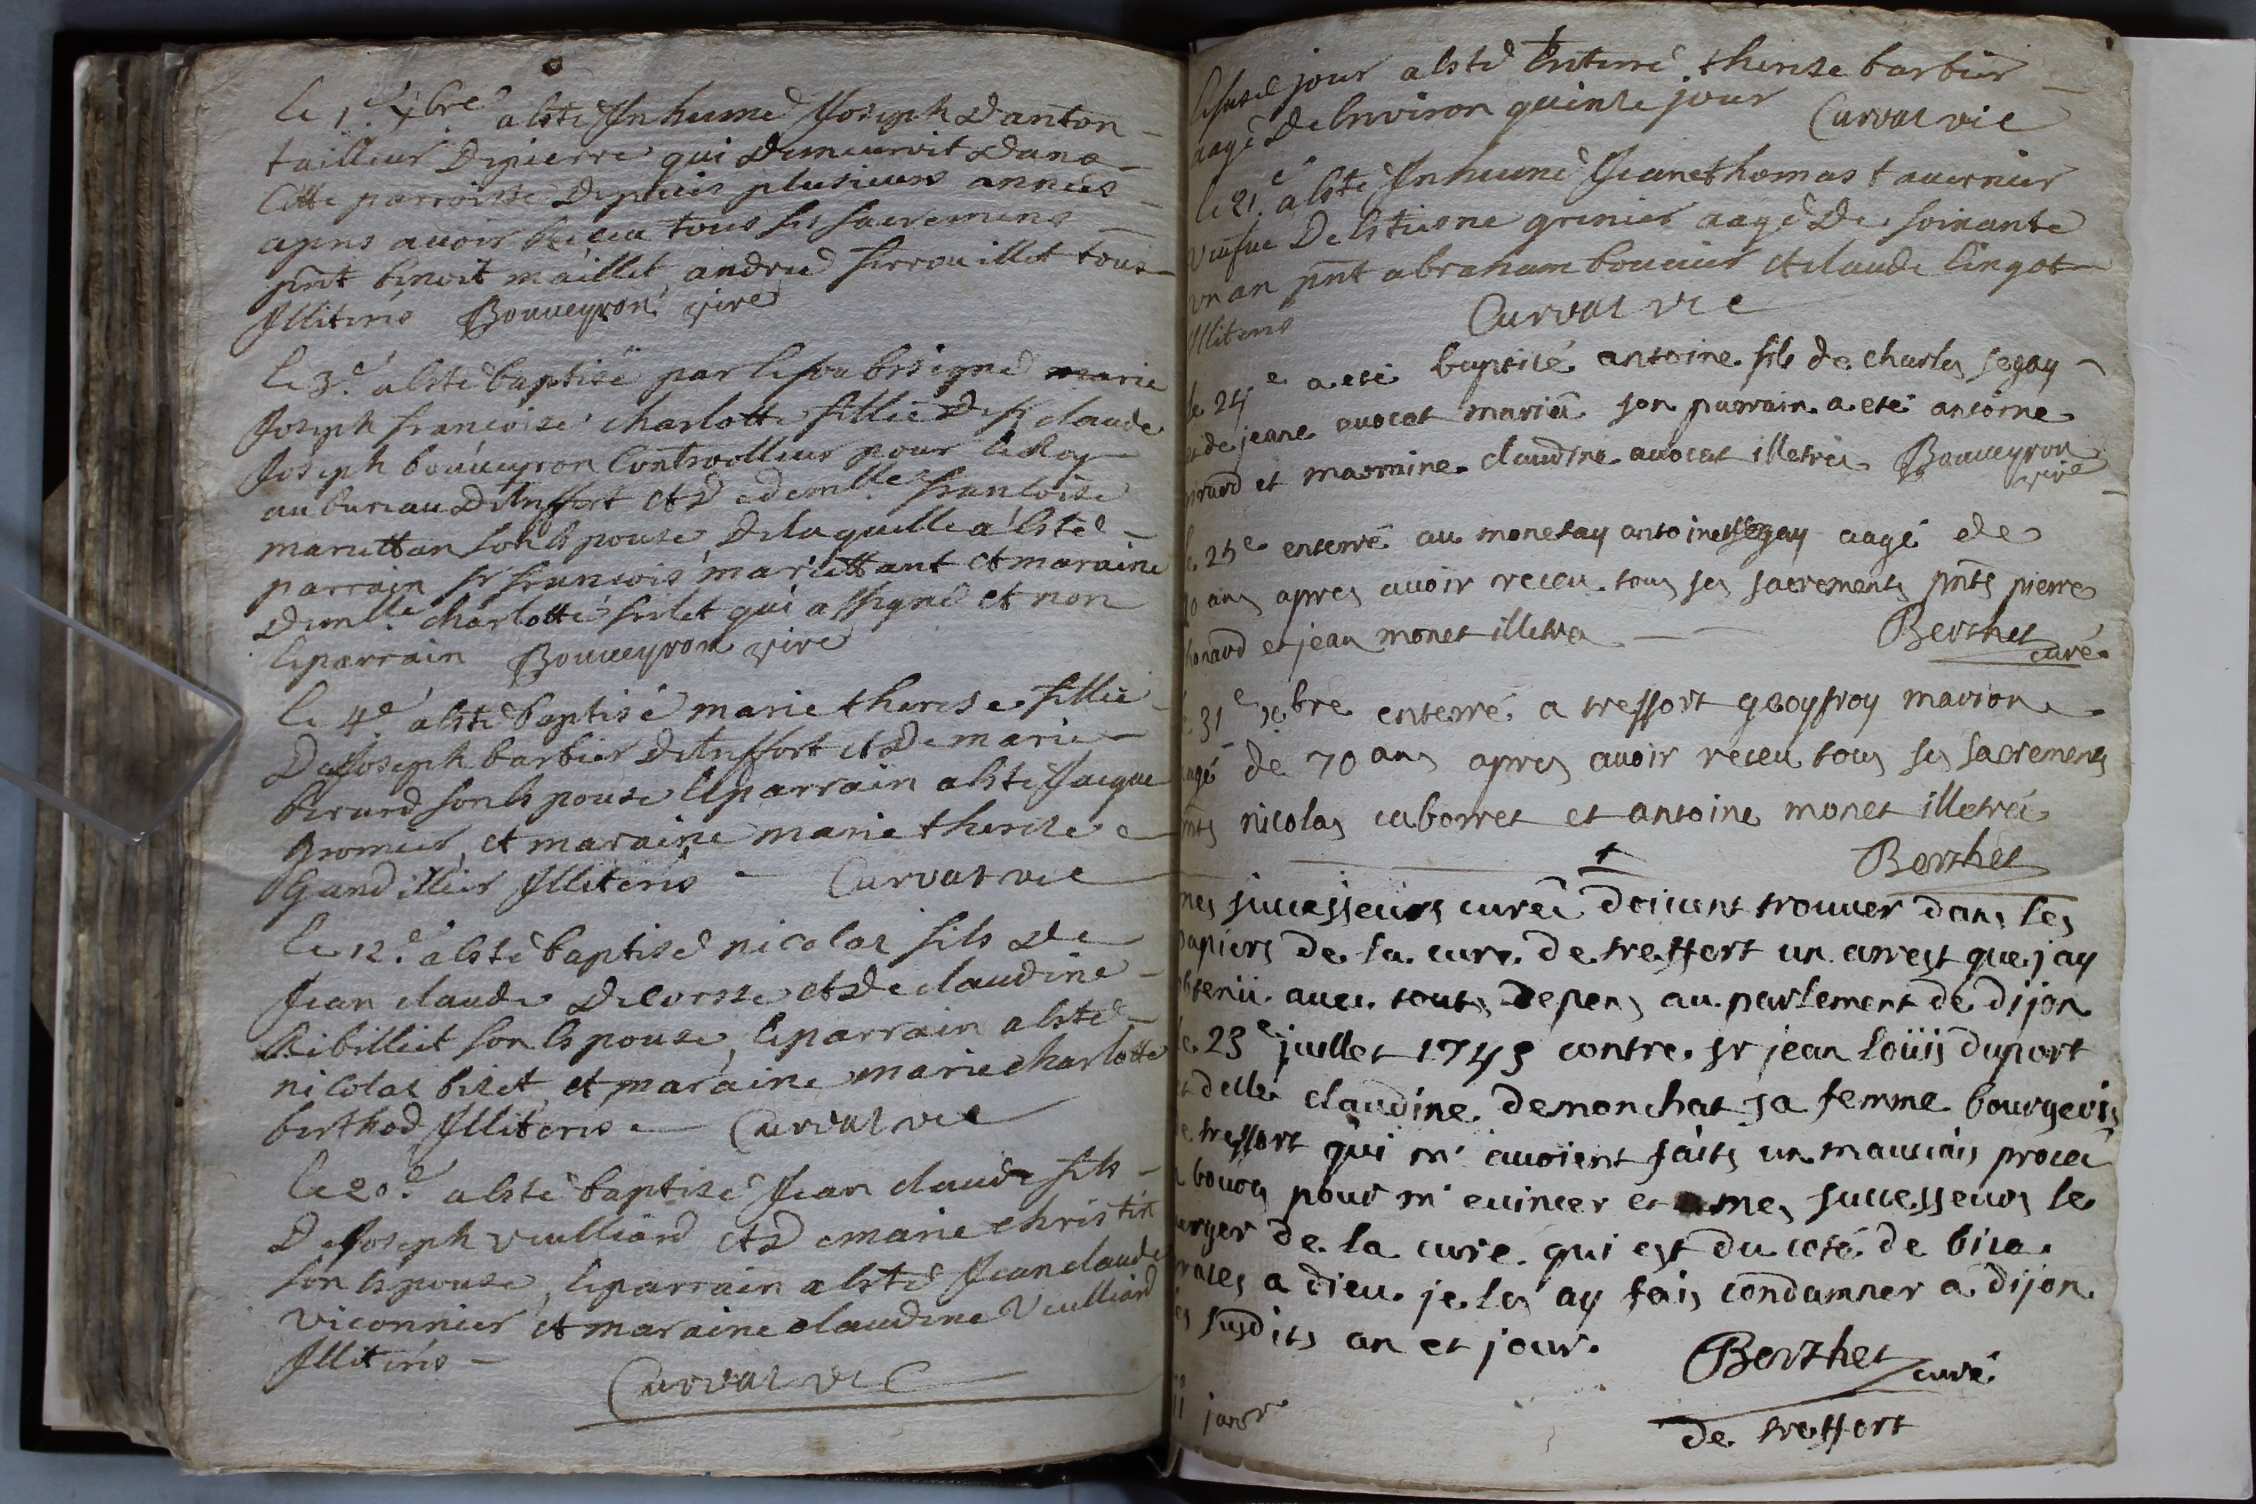 le 1er xbre a esté Inhumé Joseph Danton
tailleur De pierre qui Demeuroit Dans
Cette parroisse Depuis plusieurs années
apres avoir Receu tous ses sacremens
pnt benoit maillet, andrué ferrouillet tous
Illiterés Bouveyron vire
le 3e a esté baptisé par le soubsigné marie
Joseph francoise charlotte fillie De sr claude
Joseph bouveyron Controolleur pour le Roy
au bureau De treffort et De demlle francoise
mariettan son Espouse, De laquelle a esté
parrain sr francois mariettant et maraine
Demlle charlotte frilet qui a signé et non
le parrain Bouveyron vire
le 4e a esté baptisé marie therese fillie
De Joseph barbier De treffort et De marie
berurd son Espouse le parrain a esté Jacque
gromier, et maraine marie therese
Gandillier Illiterés Curvat vic
le 12e a esté baptisé nicolas fils De
Jean claude Decorsse et De claudine
Ribilliet son Espouse, le parrain a esté
nicolas biset et maraine marie charlotte
berthod Illiterés Curvat vic
le 20e a esté baptisé Jean claude fils
De Joseph vieulliard et De marie christin
son Espouse, le parrain a esté Jean claude
viconnier et maraine claudine Vieulliard
Illiterés
Curvat vic
le susd jour a esté Enterré therese barbier
aagé De Environ quinse jour Curvat vic
le 21e a esté Inhumé Jeane thomas tavernier
veufve De Estiesne grenier aagé De soinante
un an pnt abraham bouvier et claude lingot
Illiterés Curvat vic
le 24e a eté baptisé antoine fils de charles segay
et de jeane avocat mariéz son parrain a eté antoine
et marmine claudine avocat illetréz Bouveyron
vire
25e enterré au monetay antoine segay aagé de
ans apres avoir receu tous ses sacrements pnts pierre
et jean monet illetréz Berthet
curé
31e xbre enterré a treffort geoyfroy marion
aagé de 70 ans apres avoir receu tous ses sacrements
pnts nicolas caborret et antoine monet illetréz
Berthet
mes successeurs curéz doivent trouver dans les
papiers de la cure de treffort un arrest que jay
obtenü avec touts depens au parlement de dijon
le 23e juillet 1745 contre sr jean loüis duport
et delle claudine demonchat sa femme bourgeois
de treffort qui m'avoient faits un mauvais procéz
a bourg pour m'evincer et mes successeurs le
verger de la cure qui est du coté de bise
graces a dieu je les ay fais condamner a dijon
les susdits an et jour. Berthet curé
de treffort
janvr